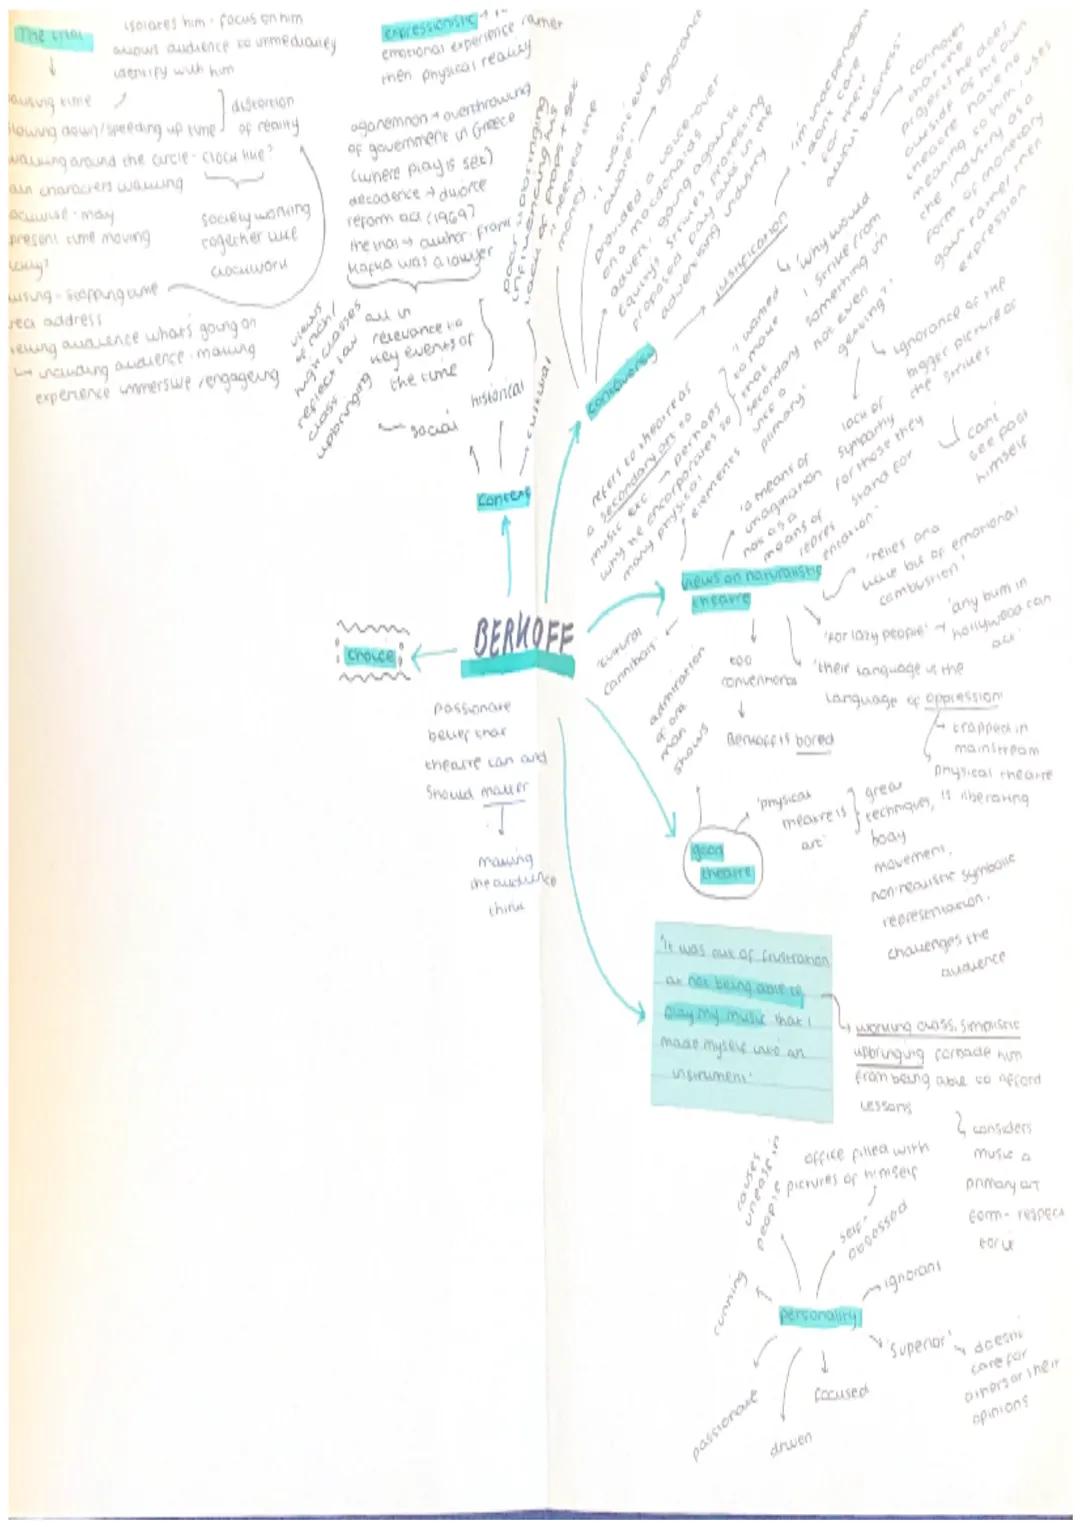 The trial
isolates him - focus on him
allows audience to immediately
identify with him
pausing time
slowing down/speeding up time
distortion
of reality
walking around the circle - clock like?
main characters walking
clockwise - may
present time moving
society working
together like
clockwork
pausing - stopping time
direct address
telling audience what's going on
↳ including audience - making
experience immersive/engaging
expressionistic
rather
emotional experience
then physical reality
agamemnon → overthrowing
of government in Greece
(where play is set)
decadence → divorce
reform act (1969)
the trial → author - Franz
Kafka was a lawyer
all in
relevance to
key events of
the time
views
of rich/
high classes
reflect low
class
upbringing
social
historical
cultural
poor upbringing
influencing his
lack of props + set
context
controversy
"needed the
money"
"I wasn't even
aware"
→ ignorance
provided a voice-over
on a mcdonalds
advert, going against
equity's strikes protessing
proposed pay cuts in the
advertising industry
→ justification
"I'm independant
I don't care
for their
awful business"
connotes
that the
projects he does
outside of his own
theatre have no
meaning to him, uses
the industry as a
form of monetary
gain rather then
expression
"why would
I strike from
something I'm
not even
getting?"
ignorance of the
bigger picture of
the strikes
lack of
sympathy
for those they
stand for
can't
see past
himself
refers to theatre as
a secondary art to
music etc → perhaps
why he encorporates so
many physical
elements
"I wanted
to make
that
secondary
into a
primary"
'a means of
imagination
not as a
means of
repres
entation'
views on naturalistic
theatre
'relies on a
wave but of emotional
combustion'
'for lazy people'
'any bum in
hollywood can
act'
'their language is the
language of oppression'
trapped in
mainstream
physical theatre
is liberating
too
conventional
Berkoff is bored
'cultural
cannibals'
BERKOFF
choice
passionate
belief that
theatre can and
should matter
making
the audience
think
admiration
of one
man
shows
good
theatre
'physical
theatre is
art'
great
techniques,
body
movement,
non-realistic symbolic
representation.
challenges the
audience
'It was out of frustration
at not being able to
play my music that I
made myself into an
instrument'
working class, simplistic
upbringing forbade him
from being able to afford
lessons
considers
music a
primary art
form - respect
for it
causes
unease in
people
office filled with
pictures of himself
self-
obsessed
ignorant
personality
cunning
'superior'
doesn't
care for
others or their
opinions
passionate
driven
focused